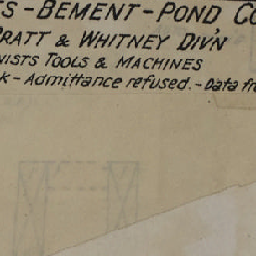 S-BEMENT-POND CO
PRATT & WHITNEY DIV'N
NISTS TOOLS & MACHINES
k-Admittance refused.-Data fr